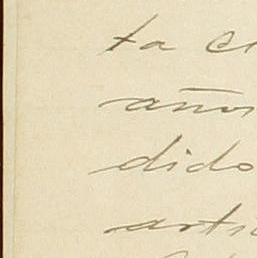 ta c
años
dido
arti